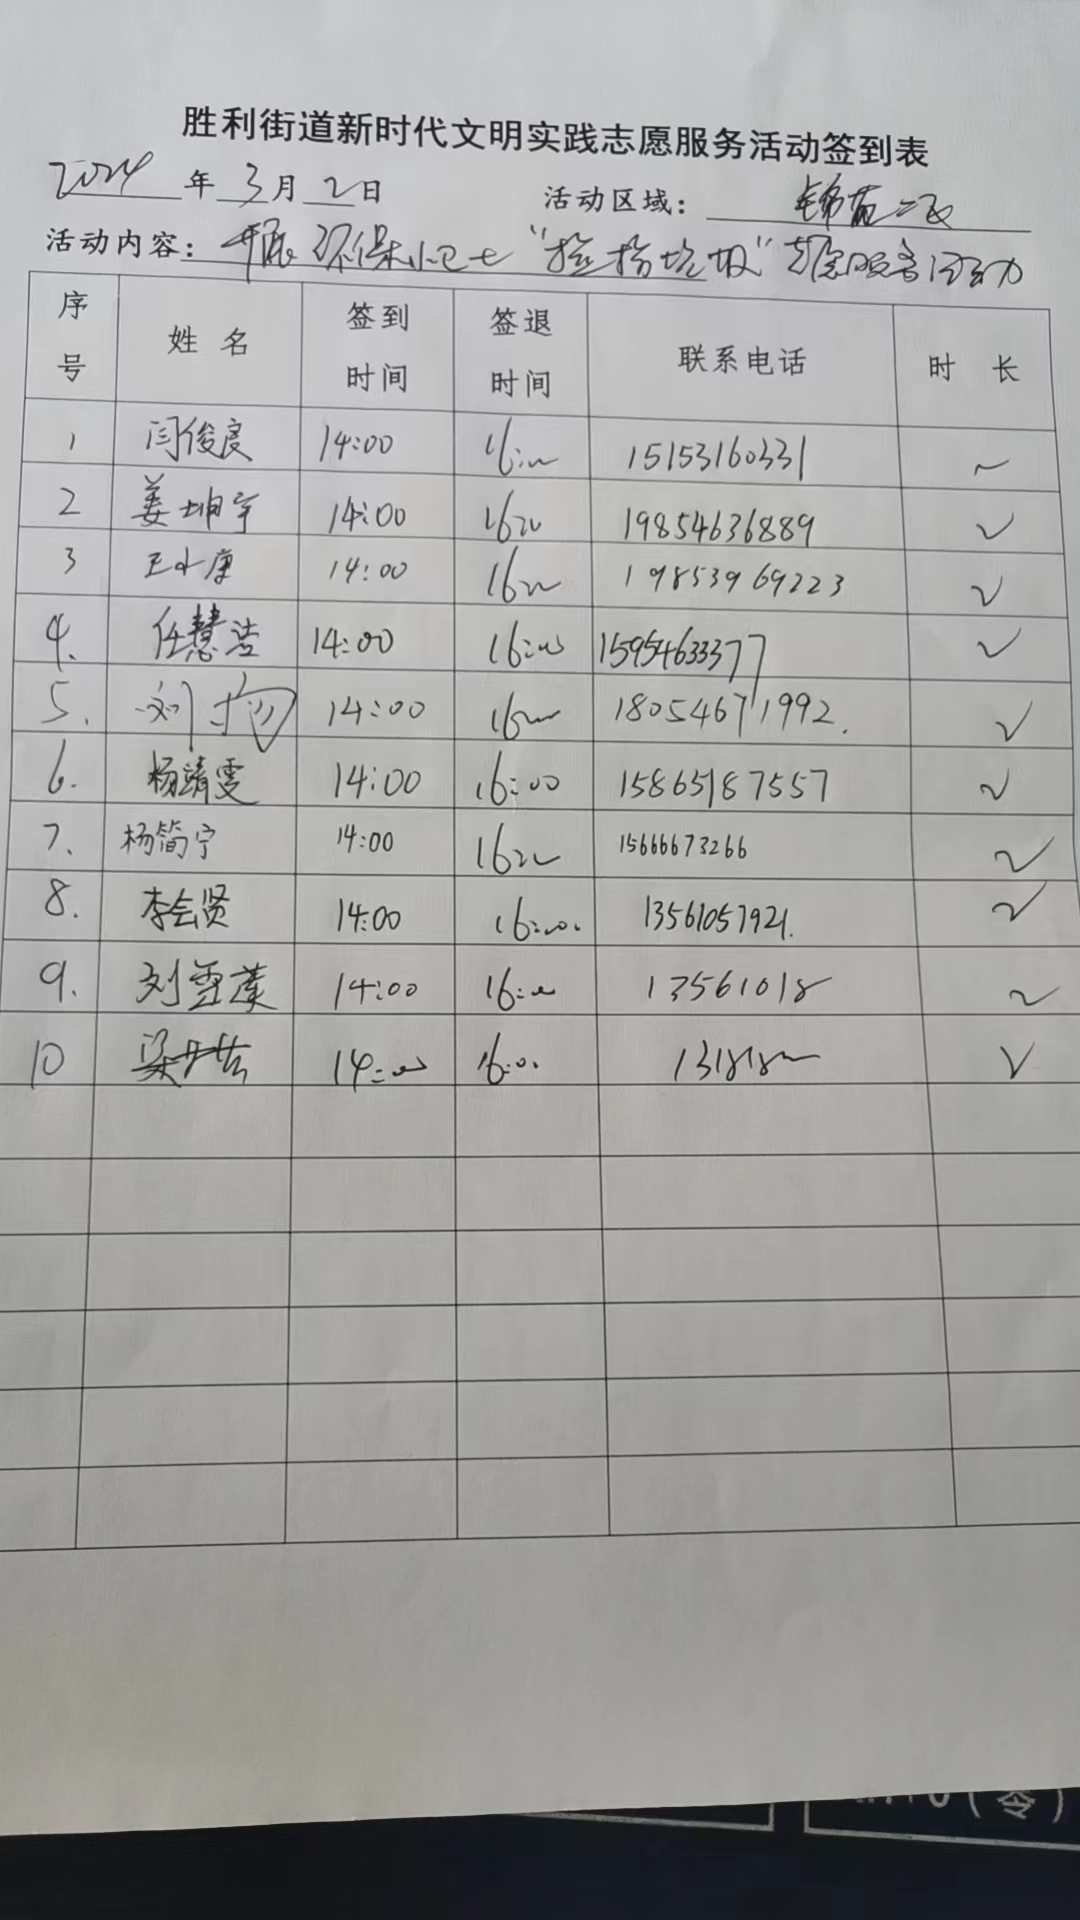 胜利街道新时代文明实践志愿服务活动签到表
2024年3月2日 活动区域：锦苑二区
活动内容：开展环保小卫士“捡拾垃圾”志愿服务活动
序号 姓名 签到时间 签退时间 联系电话 时长
1 闫俊良 14:00 16:00 15153160331
2 姜坤宇 14:00 16:00 19854636889 2
3 王小康 14:00 16:00 19853969223 2
4. 任慧浩 14:00 16:00 15954633377 2
5. 刘 14:00 16:00 18054671992. 2
6. 杨靖雯 14:00 16:00 15865187557 2
7. 杨简宁 14:00 16:00 15666673266 2
8. 李会贤 14:00 16:00. 13561057921. 2
9. 刘雪 14:00 16:00 13561018 2
10 梁 14:00 16:00. 131818
(零)